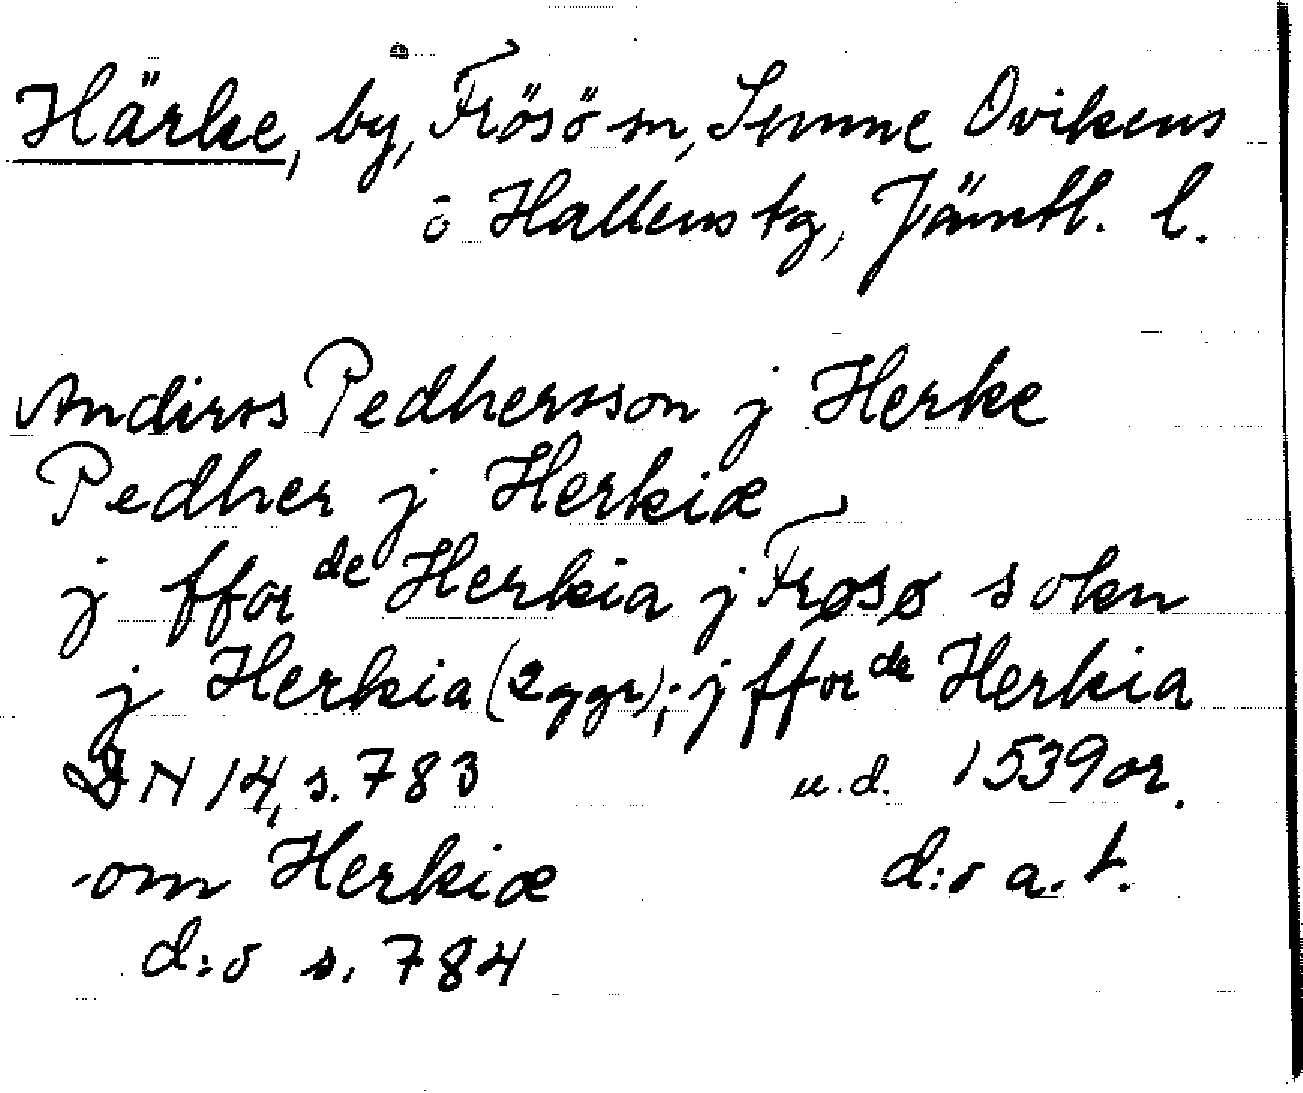 Härke, by, Frösö sn, Sunne Ovikens
o Hallens tg, Jämtl. l.
Andirss Pedhersson j Herke
Pedher j Herkiæ
j fforde Herkia j Frøsø sokn
j Herkia (2 ggr); j fforde Herkia
DN 14, s. 783 u.d. 1539 or.
om Herkiæ d:o a.t.
d:o s. 784